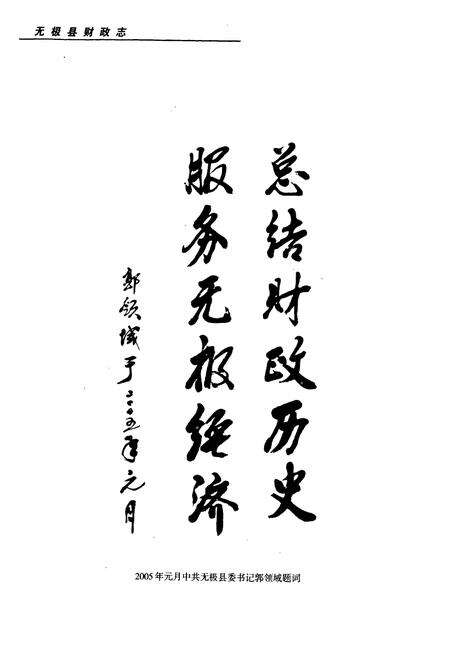 无极县财政志
总结财政历史
服务无极经济
郭领域于二〇〇五年元月
2005年元月中共无极县委书记郭领域题词